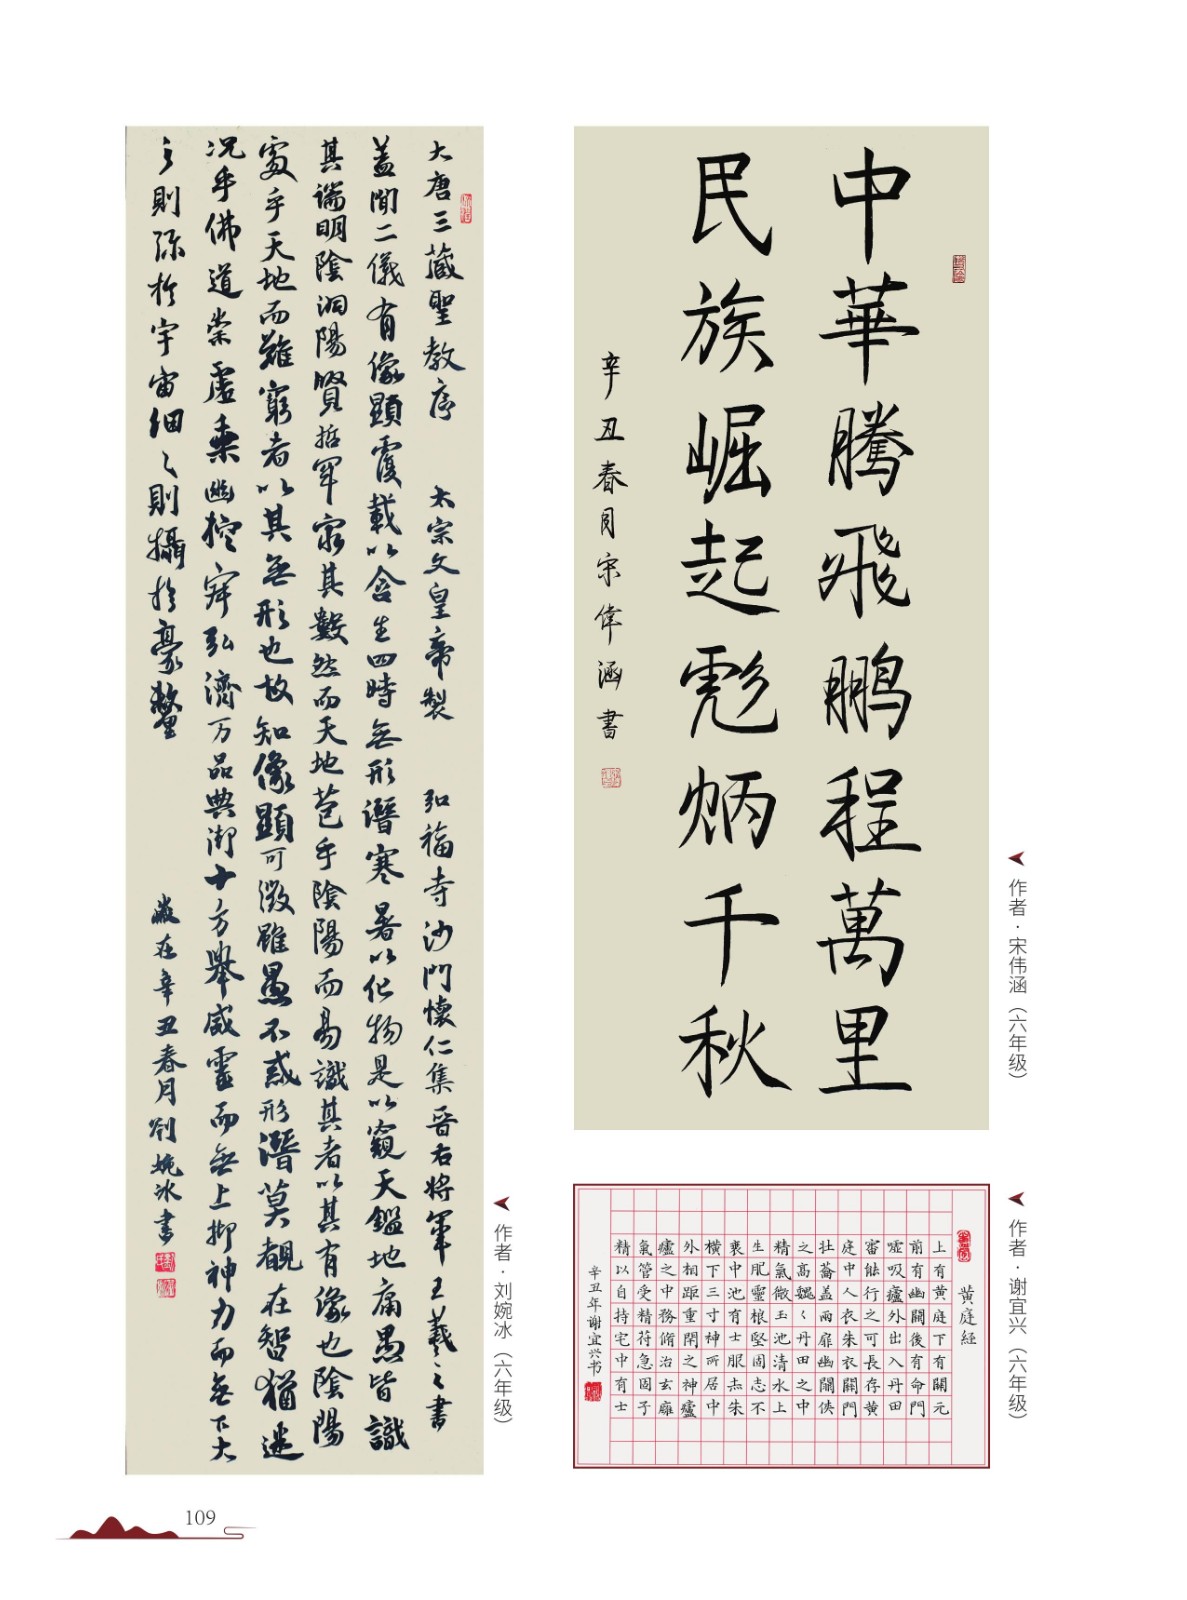 大唐三藏聖教序　太宗文皇帝製　弘福寺沙門懷仁集晉右將軍王羲之書
蓋聞二儀有像顯覆載以含生四時無形潛寒暑以化物是以窺天鑑地庸愚皆識
其端明陰洞陽賢哲罕窮其數然而天地苞乎陰陽而易識其者以其有像也陰陽
處乎天地而難窮者以其無形也故知像顯可徵雖愚不惑形潛莫覩在智猶迷
況乎佛道崇虛乘幽控寂弘濟万品典御十方舉威靈而無上抑神力而無下大
之則彌於宇宙細之則攝於豪釐
歲在辛丑春月劉婉冰書
作者·刘婉冰（六年级）
中華騰飛鵬程萬里
民族崛起彪炳千秋
辛丑春月宋偉涵書
作者·宋伟涵（六年级）
黄庭經
上有黄庭下有關元
前有幽闕後有命門
噓吸廬外出入丹田
審能行之可長存黄
庭中人衣朱衣關門
壮蘥盖兩扉幽闕俠
之高魏々丹田之中
精氣微玉池清水上
生肥靈根堅固志不
衰中池有士服赤朱
横下三寸神所居中
外相距重閉之神廬
之中務脩治玄廱
氣管受精苻急固子
精以自持宅中有士
辛丑年谢宜兴书
作者·谢宜兴（六年级）
109